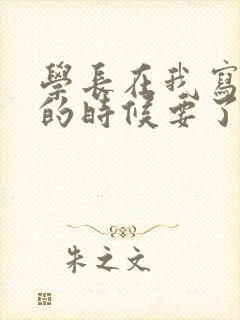 學長在我寫
的時候要了
朱之文